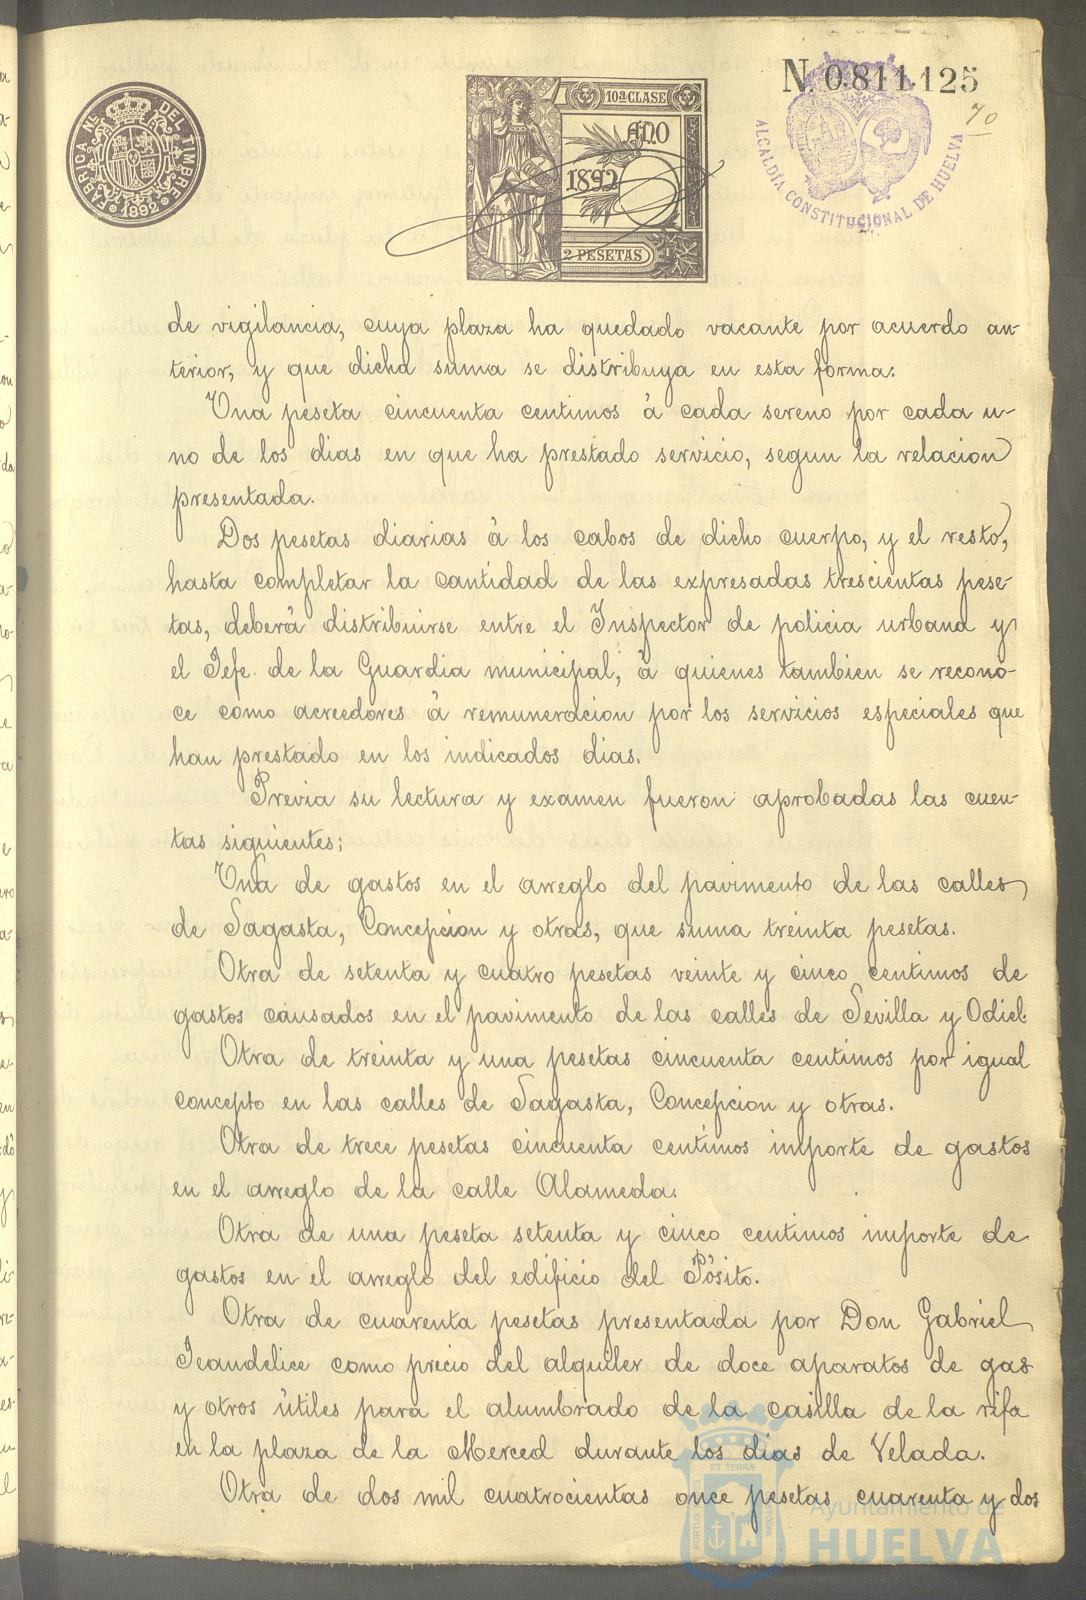 N. 0.811.125
70
FABRICA N.L DEL TIMBRE
1892
10ª CLASE
AÑO
1892
2 PESETAS
ALCALDÍA CONSTITUCIONAL DE HUELVA
de vigilancia, cuya plaza ha quedado vacante por acuerdo an-
terior, y que dicha suma se distribuya en esta forma:
Una peseta cincuenta centimos á cada sereno por cada u-
no de los dias en que ha prestado servicio, segun la relacion
presentada.
Dos pesetas diarias á los cabos de dicho cuerpo, y el resto,
hasta completar la cantidad de las expresadas trescientas pese-
tas, deberá distribuirse entre el Inspector de policia urbana y
el Jefe de la Guardia municipal, á quienes tambien se recono-
ce como acreedores á remuneracion por los servicios especiales que
han prestado en los indicados dias.
Previa su lectura y examen fueron aprobadas las cuen-
tas siguientes:
Una de gastos en el arreglo del pavimento de las calles
de Sagasta, Concepcion y otras, que suma treinta pesetas.
Otra de setenta y cuatro pesetas veinte y cinco centimos de
gastos causados en el pavimento de las calles de Sevilla y Odiel.
Otra de treinta y una pesetas cincuenta centimos por igual
concepto en las calles de Sagasta, Concepcion y otras.
Otra de trece pesetas cincuenta centimos importe de gastos
en el arreglo de la calle Alameda.
Otra de una peseta setenta y cinco centimos importe de
gastos en el arreglo del edificio del Pósito.
Otra de cuarenta pesetas presentada por Don Gabriel
Jeandelice como precio del alquiler de doce aparatos de gas
y otros útiles para el alumbrado de la casilla de la rifa
en la plaza de la Merced durante los dias de Velada.
Otra de dos mil cuatrocientas once pesetas cuarenta y dos
Ayuntamiento de
HUELVA